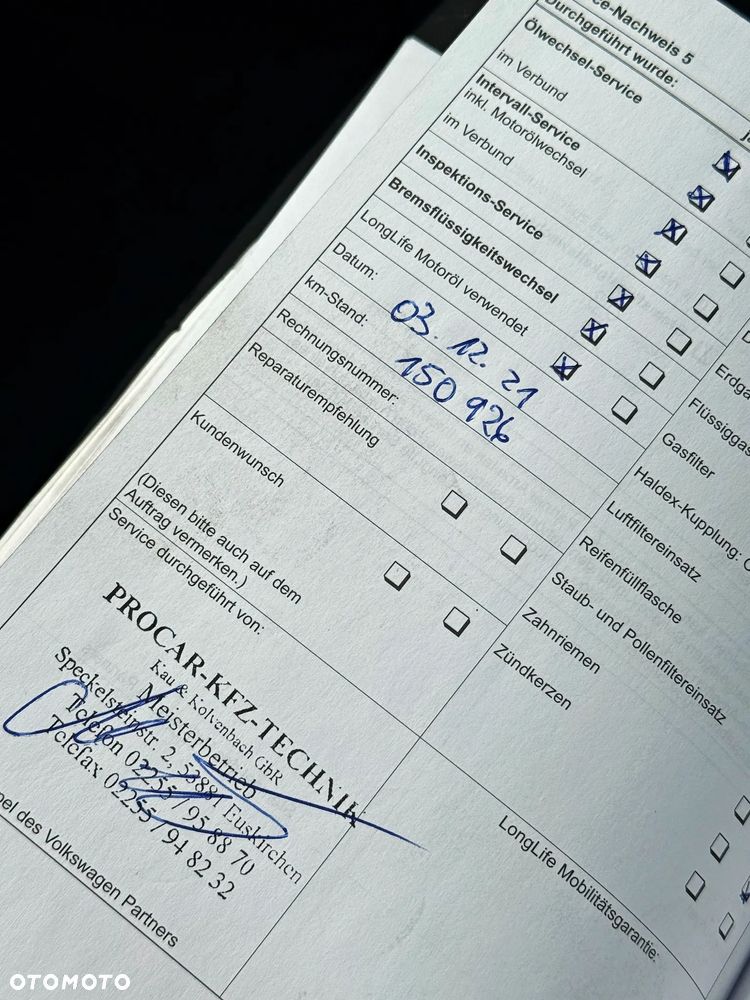 ce-Nachweis 5
Durchgeführt wurde:
Ölwechsel-Service
im Verbund
Intervall-Service
inkl. Motorölwechsel
im Verbund
Inspektions-Service
Bremsflüssigkeitswechsel
LongLife Motoröl verwendet
Datum: 03. 12. 21
km-Stand: 150 926
Rechnungsnummer:
Reparaturempfehlung
Kundenwunsch
(Diesen bitte auch auf dem
Auftrag vermerken.)
Service durchgeführt von:
PROCAR-KFZ-TECHNIK
Kau & Kolvenbach GbR
Meisterbetrieb
Speckelsteinstr. 2, 53881 Euskirchen
Telefon 02255 / 95 88 70
Telefax 02255 / 94 82 32
pel des Volkswagen Partners
Erdga
Flüssiggas
Gasfilter
Haldex-Kupplung:
Luftfiltereinsatz
Reifenfüllflasche
Staub- und Pollenfiltereinsatz
Zahnriemen
Zündkerzen
LongLife Mobilitätsgarantie:
OTOMOTO